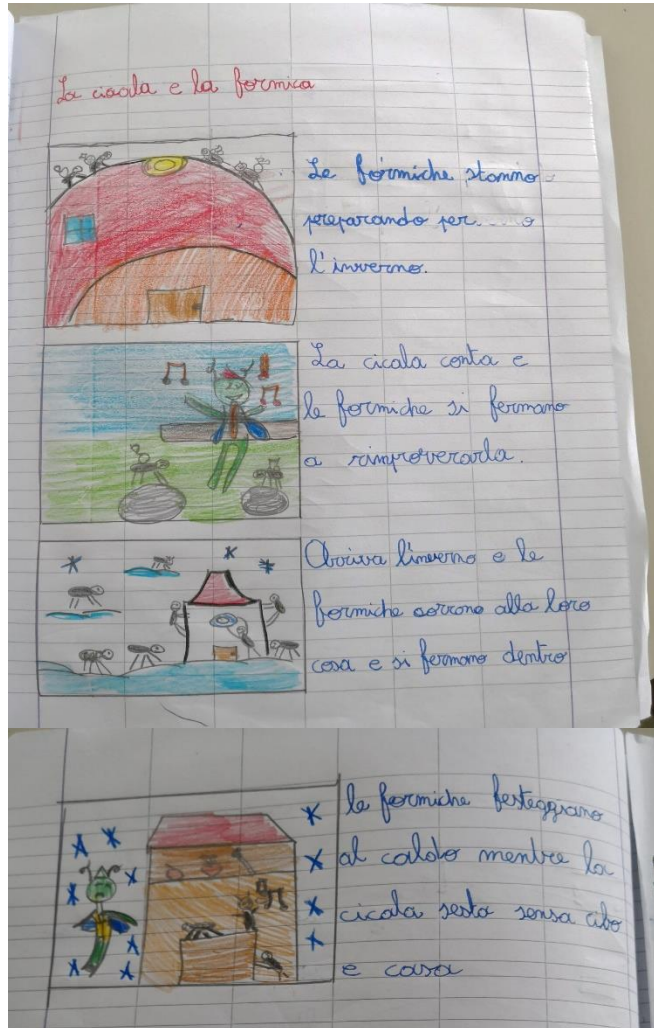 La cicala e la formica
Le formiche stanno
preparando per
l'inverno.
La cicala canta e
le formiche si fermano
a rimproverarla.
Arriva l'inverno e le
formiche corrono alla loro
casa e si fermano dentro
le formiche festeggiano
al caldo mentre la
cicala resta sensa cibo
e casa